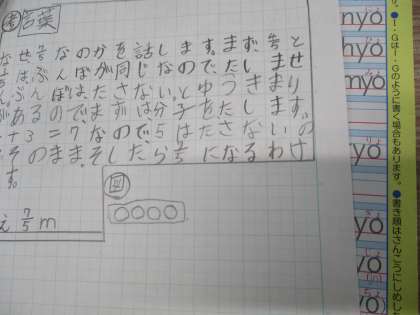 言葉
なぜ7/5なのかを話します。まず、
は、ぶんぼが同じなので、たしませ
ん。ぶんぼはたさないとゆうきまり
があるのでまずは分子をたします。
+3=7なので、5はたさないの
そのまま。そしたら7/5になるわけ
す。
図
え 7/5 m
nyo
hyo
myo
ryo
のように書く場合もあります。
●書き順はさんこうにしめし